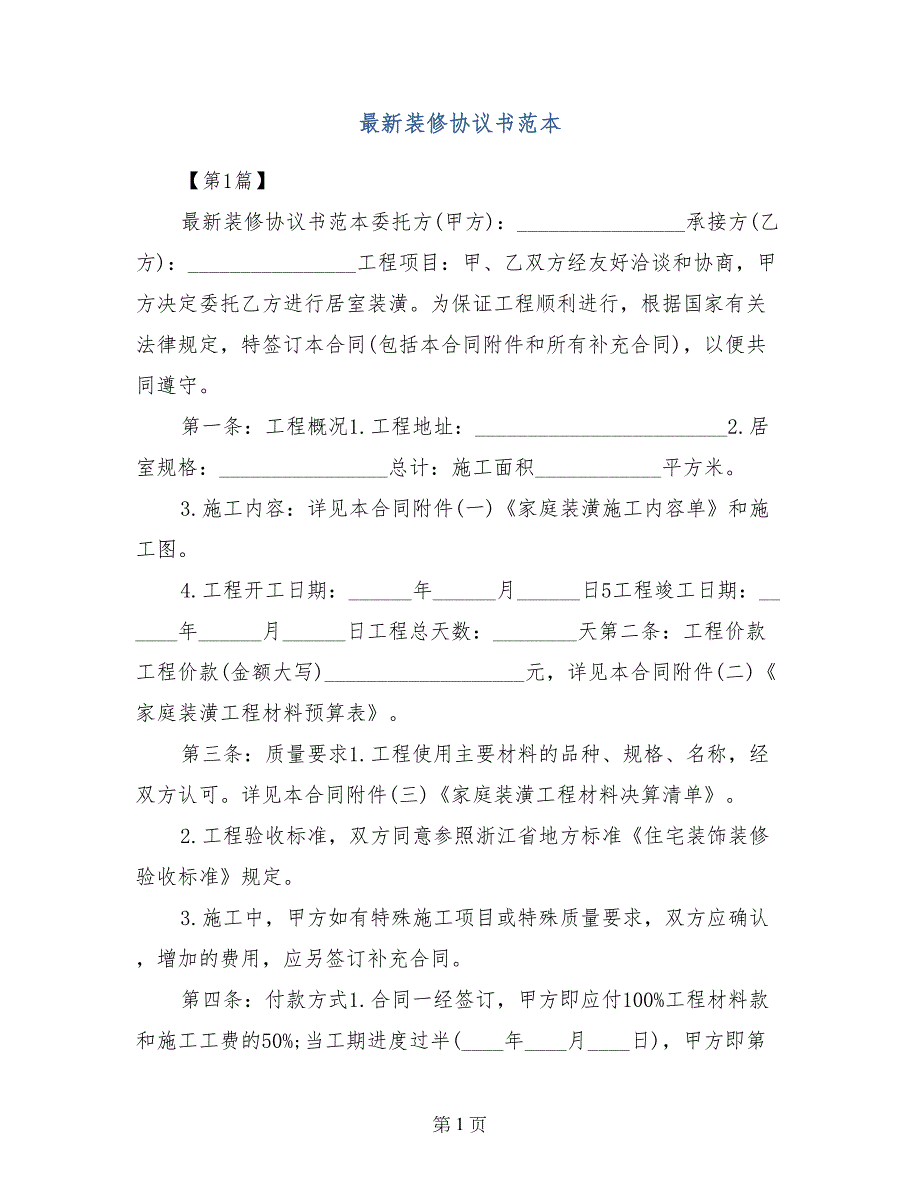 最新装修协议书范本
【第1篇】
最新装修协议书范本委托方(甲方)：________________承接方(乙
方)：________________工程项目：甲、乙双方经友好洽谈和协商，甲
方决定委托乙方进行居室装潢。为保证工程顺利进行，根据国家有关
法律规定，特签订本合同(包括本合同附件和所有补充合同)，以便共
同遵守。
第一条：工程概况1.工程地址：________________________2.居
室规格：________________总计：施工面积____________平方米。
3.施工内容：详见本合同附件(一)《家庭装潢施工内容单》和施
工图。
4.工程开工日期：______年______月______日5工程竣工日期：__
____年______月______日工程总天数：________天第二条：工程价款
工程价款(金额大写)___________________元，详见本合同附件(二)《
家庭装潢工程材料预算表》。
第三条：质量要求1.工程使用主要材料的品种、规格、名称，经
双方认可。详见本合同附件(三)《家庭装潢工程材料决算清单》。
2.工程验收标准，双方同意参照浙江省地方标准《住宅装饰装修
验收标准》规定。
3.施工中，甲方如有特殊施工项目或特殊质量要求，双方应确认
，增加的费用，应另签订补充合同。
第四条：付款方式1.合同一经签订，甲方即应付100%工程材料款
和施工工费的50%;当工期进度过半(____年____月____日)，甲方即第
第 1 页